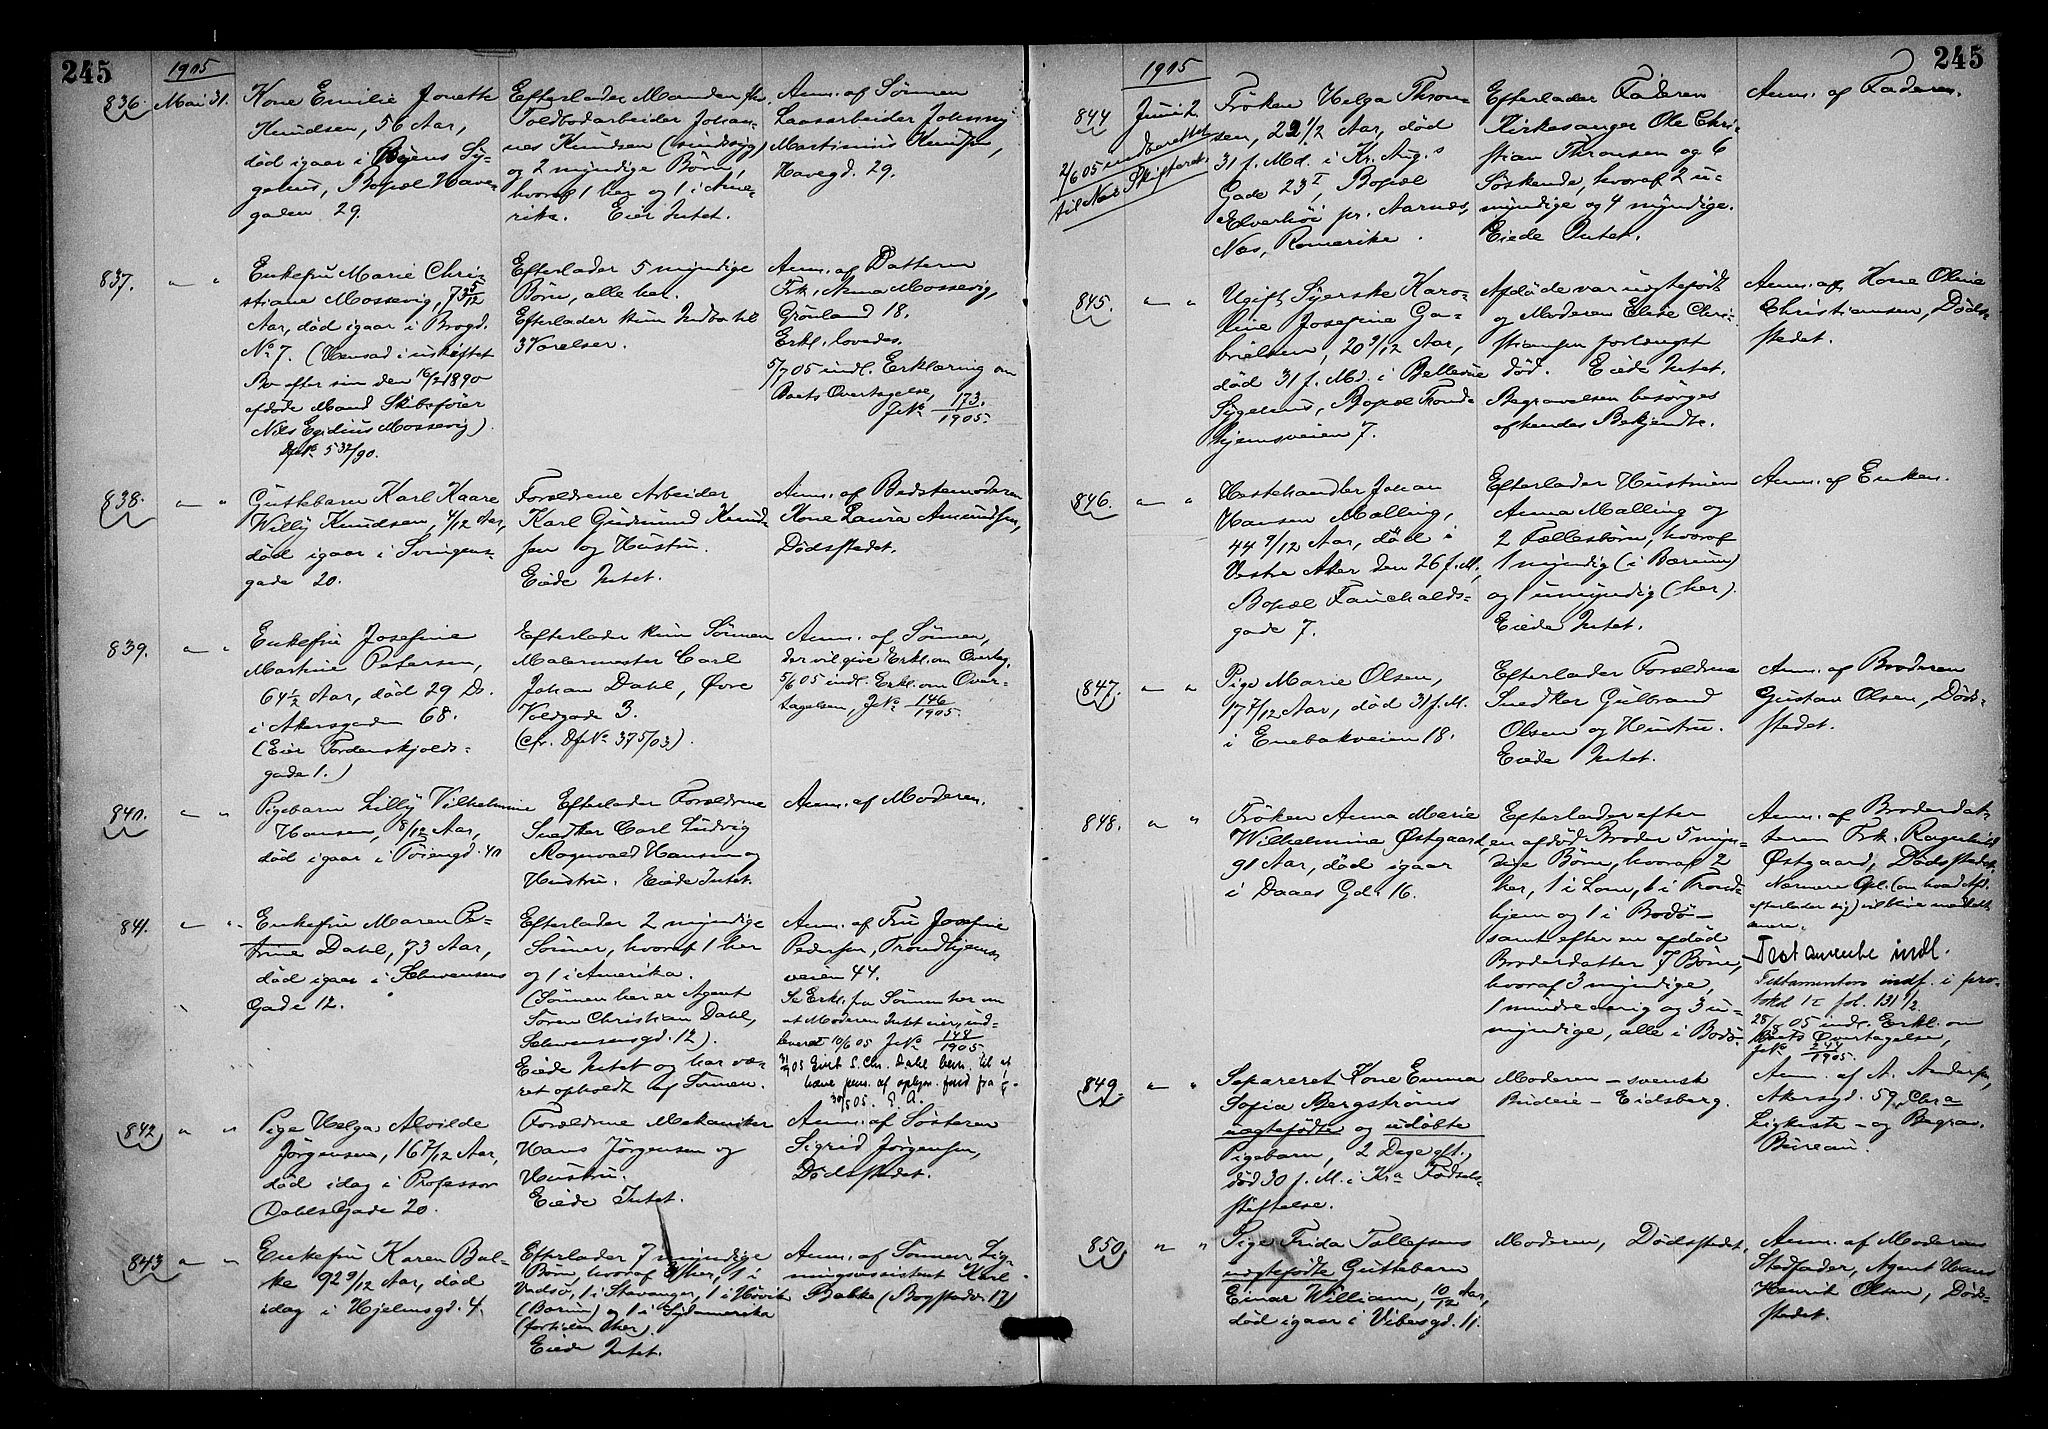 245
1905
836. Mai 31.
Kone Emilie Jonette
Knudsen, 56 Aar,
død igaar i Byens Sy-
gehus, Bopæl Have-
gaden 29.
Efterlader Manden fhv.
Toldbodarbeider Johan-
nes Knudsen (sindssyg)
og 2 myndige Børn,
hvoraf 1 her og 1 i Ame-
rika. Eier Intet.
Anm. af Sønnen
Laasarbeider Johnny
Martinius Knudsen,
Havegd. 29.
837. " "
Enkefru Marie Chri-
stiane Mossevig, 73 5/12
Aar, død igaar i Brogd.
No 7. (Hensad i uskiftet
Bo efter sin den 16/2 1890
afdøde Mand Skibsfører
Nils Egidius Mossevig).
Dfs No 532/90.
Efterlader 5 myndige
Børn, alle her.
Efterlader kun Indbo til
3 Værelser.
Anm. af Datteren
Frk. Anna Mossevig,
Grønland 18.
Erkl. lovedes.
5/7 05 indl. Erklæring om
Boets Overtagelse,
J No 173/1905.
838. " "
Guttebarn Karl Kaare
Willy Knudsen, 4/12 Aar,
død igaar i Svingens-
gade 20.
Forældrene Arbeider
Karl Gudmund Knud-
sen og Hustru.
Eiede Intet.
Anm. af Bedstemoderen
Kone Laura Amundsen,
Dødsstedet.
839. " "
Enkefru Josefine
Martine Petersen,
64 1/2 Aar, død 29 Ds.
i Akersgaden 68.
(Eier Tordenskjolds-
gade 1.)
Efterlader kun Sønnen
Malermester Carl
Johan Dahl, Øvre
Voldgade 3.
(cfr. Df No 375/03).
Anm. af Sønnen,
der vil give Erkl. om Overtag.
5/6 05 indl. Erkl. om Over-
tagelsen, J No 146/1905.
840. " "
Pigebarn Lilly Vilhelmine
Hansen, 8/12 Aar,
død igaar i Tøiengd. 40
Efterlader Forældrene
Snedker Carl Ludvig
Ragnvald Hansen og
Hustru. Eiede Intet.
Anm. af Moderen.
841. " "
Enkefru Maren Pe-
trine Dahl, 73 Aar,
død igaar i Schwensens
Gade 12.
Efterlader 2 myndige
Sønner, hvoraf 1 her
og 1 i Amerika.
(Sønnen her er Agent
Søren Christian Dahl,
Schwensensgd. 12).
Eiede Intet og har væ-
ret opholdt af Sønnen.
Anm. af Fru Josefine
Pedersen, Trondhjems-
veien 44.
Se Erkl. fra Sønnen her om
at Moderen Intet eier, ind-
leveret 10/6 05 J No 148/1905
05 Enst S. Chr. Dahl
30/5 05. E. A.
842 " "
Pige Helga Alvilde
Jörgensen, 16 7/12 Aar,
død idag i Professor
Dahls Gade 20.
Forældrene Mekaniker
Hans Jörgensen og
Hustru.
Eiede Intet.
Anm. af Søsteren
Sigrid Jørgensen,
Dødsstedet.
843 " "
Enkefru Karen Bal-
ke 92 9/12 Aar, død
idag i Hjelmsgd. 4.
Efterlader 7 myndige
Børn, hvoraf her, 1 i
Vadsø, 1 i Stavanger, 1 i Høvik
(Bærum) og 1 i Sydamerika
(fortiden her).
Eiede Intet.
Anm. af Sønnen Lig-
ningsassistent Karl
Balke (Bogstadv. 17)
245
1905
844 Juni 2.
2/6 05 indberettet
til Nes Skifteret.
Frøken Helga Thron-
sen, 22 1/2 Aar, død
31 f. Md. i Kr. Aug.s
Gade 23 I, Bopæl
Elverhøi pr. Aarnes,
Nes, Romerike.
Efterlader Faderen
Kirkesanger Ole Chri-
stian Thronsen og 6
Søskende, hvoraf 2 u-
myndige og 4 myndige.
Eiede Intet.
Anm. af Faderen.
845. " "
Ugift Syerske Karo-
line Josefine Ga-
brielsen, 20 9/12 Aar,
død 31 f. Md. i Bellevue
Sygehus, Bopæl Trond-
hjemsveien 7.
Afdøde var uægtefødt
og Moderen Elise Chri-
stiansen forlængst
død. Eiede Intet.
Begravelsen besørges
af hendes Bekjendte.
Anm. af Kone Oline
Christiansen, Døds-
stedet.
846. " "
Hestehandler Johan
Hansen Malling,
44 9/12 Aar, død i
Vestre Aker den 26 f. M.,
Bopæl Fauchalds-
gade 7.
Efterlader Hustruen
Anna Malling og
2 Fællesbørn, hvoraf
1 myndig (i Bærum)
og 1 umyndig (her).
Eiede Intet.
Anm. af Enken.
847. " "
Pige Marie Olsen,
17 7/12 Aar, død 31 f. M.
i Enebakveien 18.
Efterlader Forældrene
Snedker Gulbrand
Olsen og Hustru.
Eiede Intet.
Anm. af Broderen
Gustav Olsen, Døds-
stedet.
848. " "
Frøken Anna Marie
Wilhelmine Østgaard,
91 Aar, død igaar
i Daaes Gd. 16.
Efterlader efter
en afdød Broder 5 myn-
dige Børn, hvoraf 2
her, 1 i Lom, 1 i Trond-
hjem og 1 i Bodø —
samt efter en afdød
Broderdatter 7 Børn,
hvoraf 3 myndige,
1 mindreaarig og 3 u-
myndige, alle i Bodø.
Anm. af Broderdat-
teren Frk. Ragnhild
Østgaard, Dødsstedet.
Nærmere Opl. (om hvad Afd.
efterlader sig) vil blive meddelt
senere.
Testamente indl.
Testamentero indf. i pro-
tokol 1 c fol. 131 1/2
28/8 05 indl. Erkl. om
Boets Overtagelse,
J No 244/1905.
849. " "
Separeret Kone Emma
Sofia Bergstrøms
uægtefødte og udøbte
Pigebarn, 2 Dage glt.,
død 30 f. M. i Kra Fødsels-
stiftelse.
Moderen — svensk
Budeie — Eidsberg.
Anm. af A. Andersen,
Akersgd. 59, Chra
Ligkiste- og Begrav.
Bureau.
850 " "
Pige Frida Tollefsens
uægtefødte Guttebarn
Einar William, 10/12 Aar,
død igaar i Vibesgd. 11.
Moderen, Dødsstedet.
Anm. af Moderens
Stedfader, Agent Hans
Henrik Olsen, Døds-
stedet.